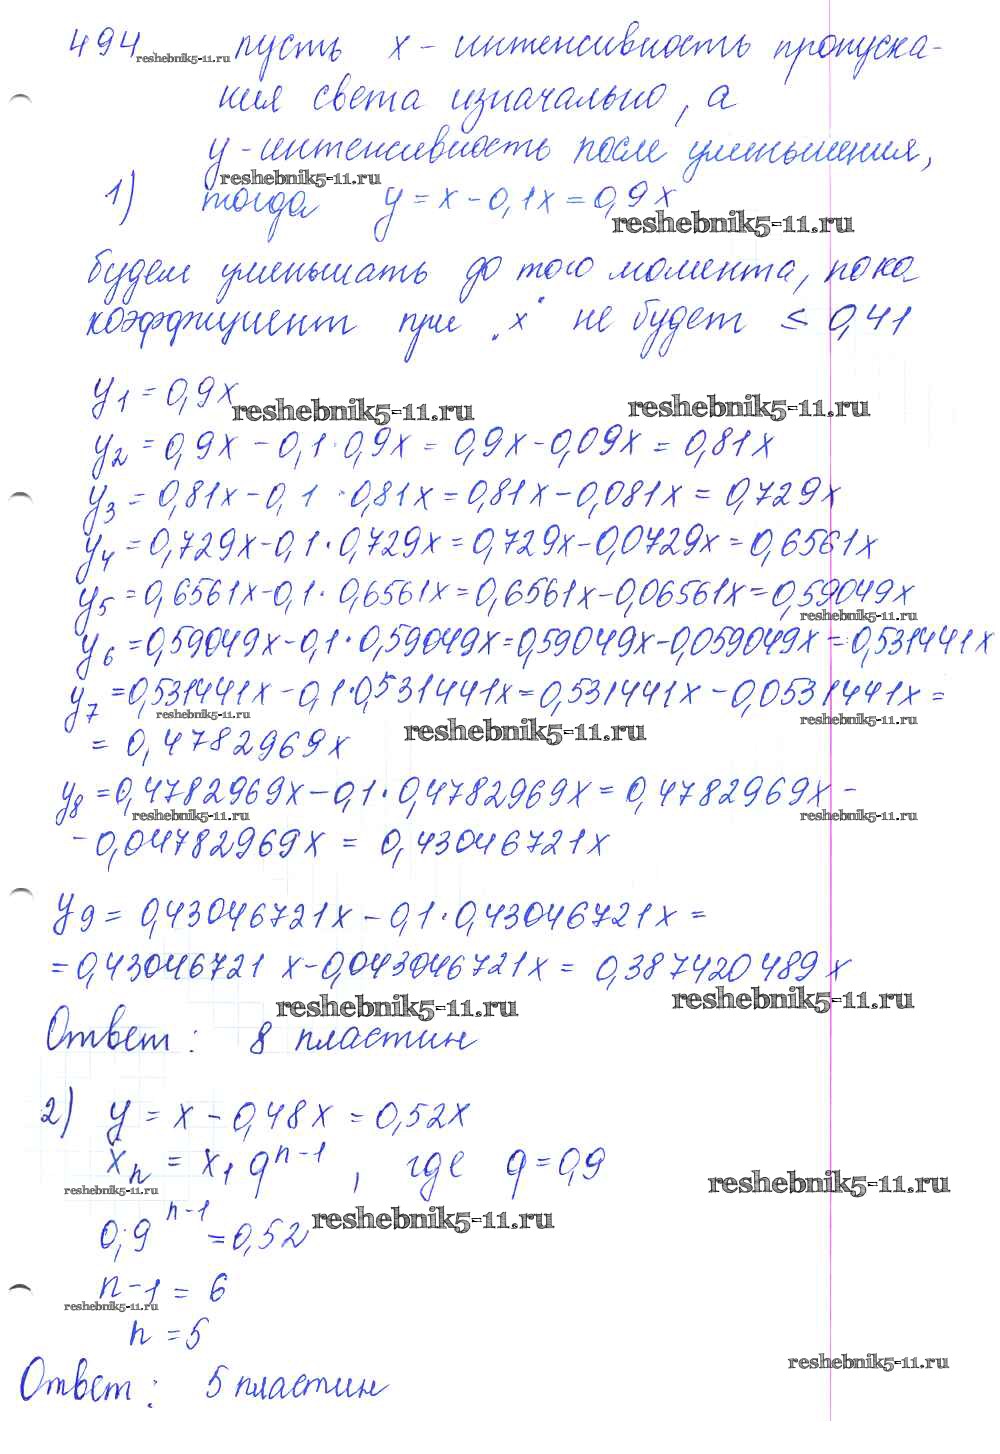 494 reshebnik5-11.ru пусть x - интенсивность пропуска-
ния света изначально, а
y - интенсивность после уменьшения,
reshebnik5-11.ru
1) тогда y = x - 0,1x = 0,9x
reshebnik5-11.ru
будем уменьшать до того момента, пока
коэффициент при "x" не будет ≤ 0,41
y1 = 0,9x
reshebnik5-11.ru reshebnik5-11.ru
y2 = 0,9x - 0,1·0,9x = 0,9x - 0,09x = 0,81x
y3 = 0,81x - 0,1·0,81x = 0,81x - 0,081x = 0,729x
y4 = 0,729x - 0,1·0,729x = 0,729x - 0,0729x = 0,6561x
y5 = 0,6561x - 0,1·0,6561x = 0,6561x - 0,06561x = 0,59049x
reshebnik5-11.ru
y6 = 0,59049x - 0,1·0,59049x = 0,59049x - 0,059049x = 0,531441x
y7 = 0,531441x - 0,1·0,531441x = 0,531441x - 0,0531441x =
reshebnik5-11.ru reshebnik5-11.ru reshebnik5-11.ru
= 0,4782969x
y8 = 0,4782969x - 0,1·0,4782969x = 0,4782969x -
reshebnik5-11.ru reshebnik5-11.ru
- 0,04782969x = 0,43046721x
y9 = 0,43046721x - 0,1·0,43046721x =
= 0,43046721x - 0,043046721x = 0,387420489x
reshebnik5-11.ru reshebnik5-11.ru
Ответ: 8 пластин
2) y = x - 0,48x = 0,52x
xn = x1 q^n-1, где q = 0,9
reshebnik5-11.ru reshebnik5-11.ru
0,9^n-1 = 0,52
reshebnik5-11.ru
n - 1 = 6
reshebnik5-11.ru
n = 5
reshebnik5-11.ru
Ответ: 5 пластин